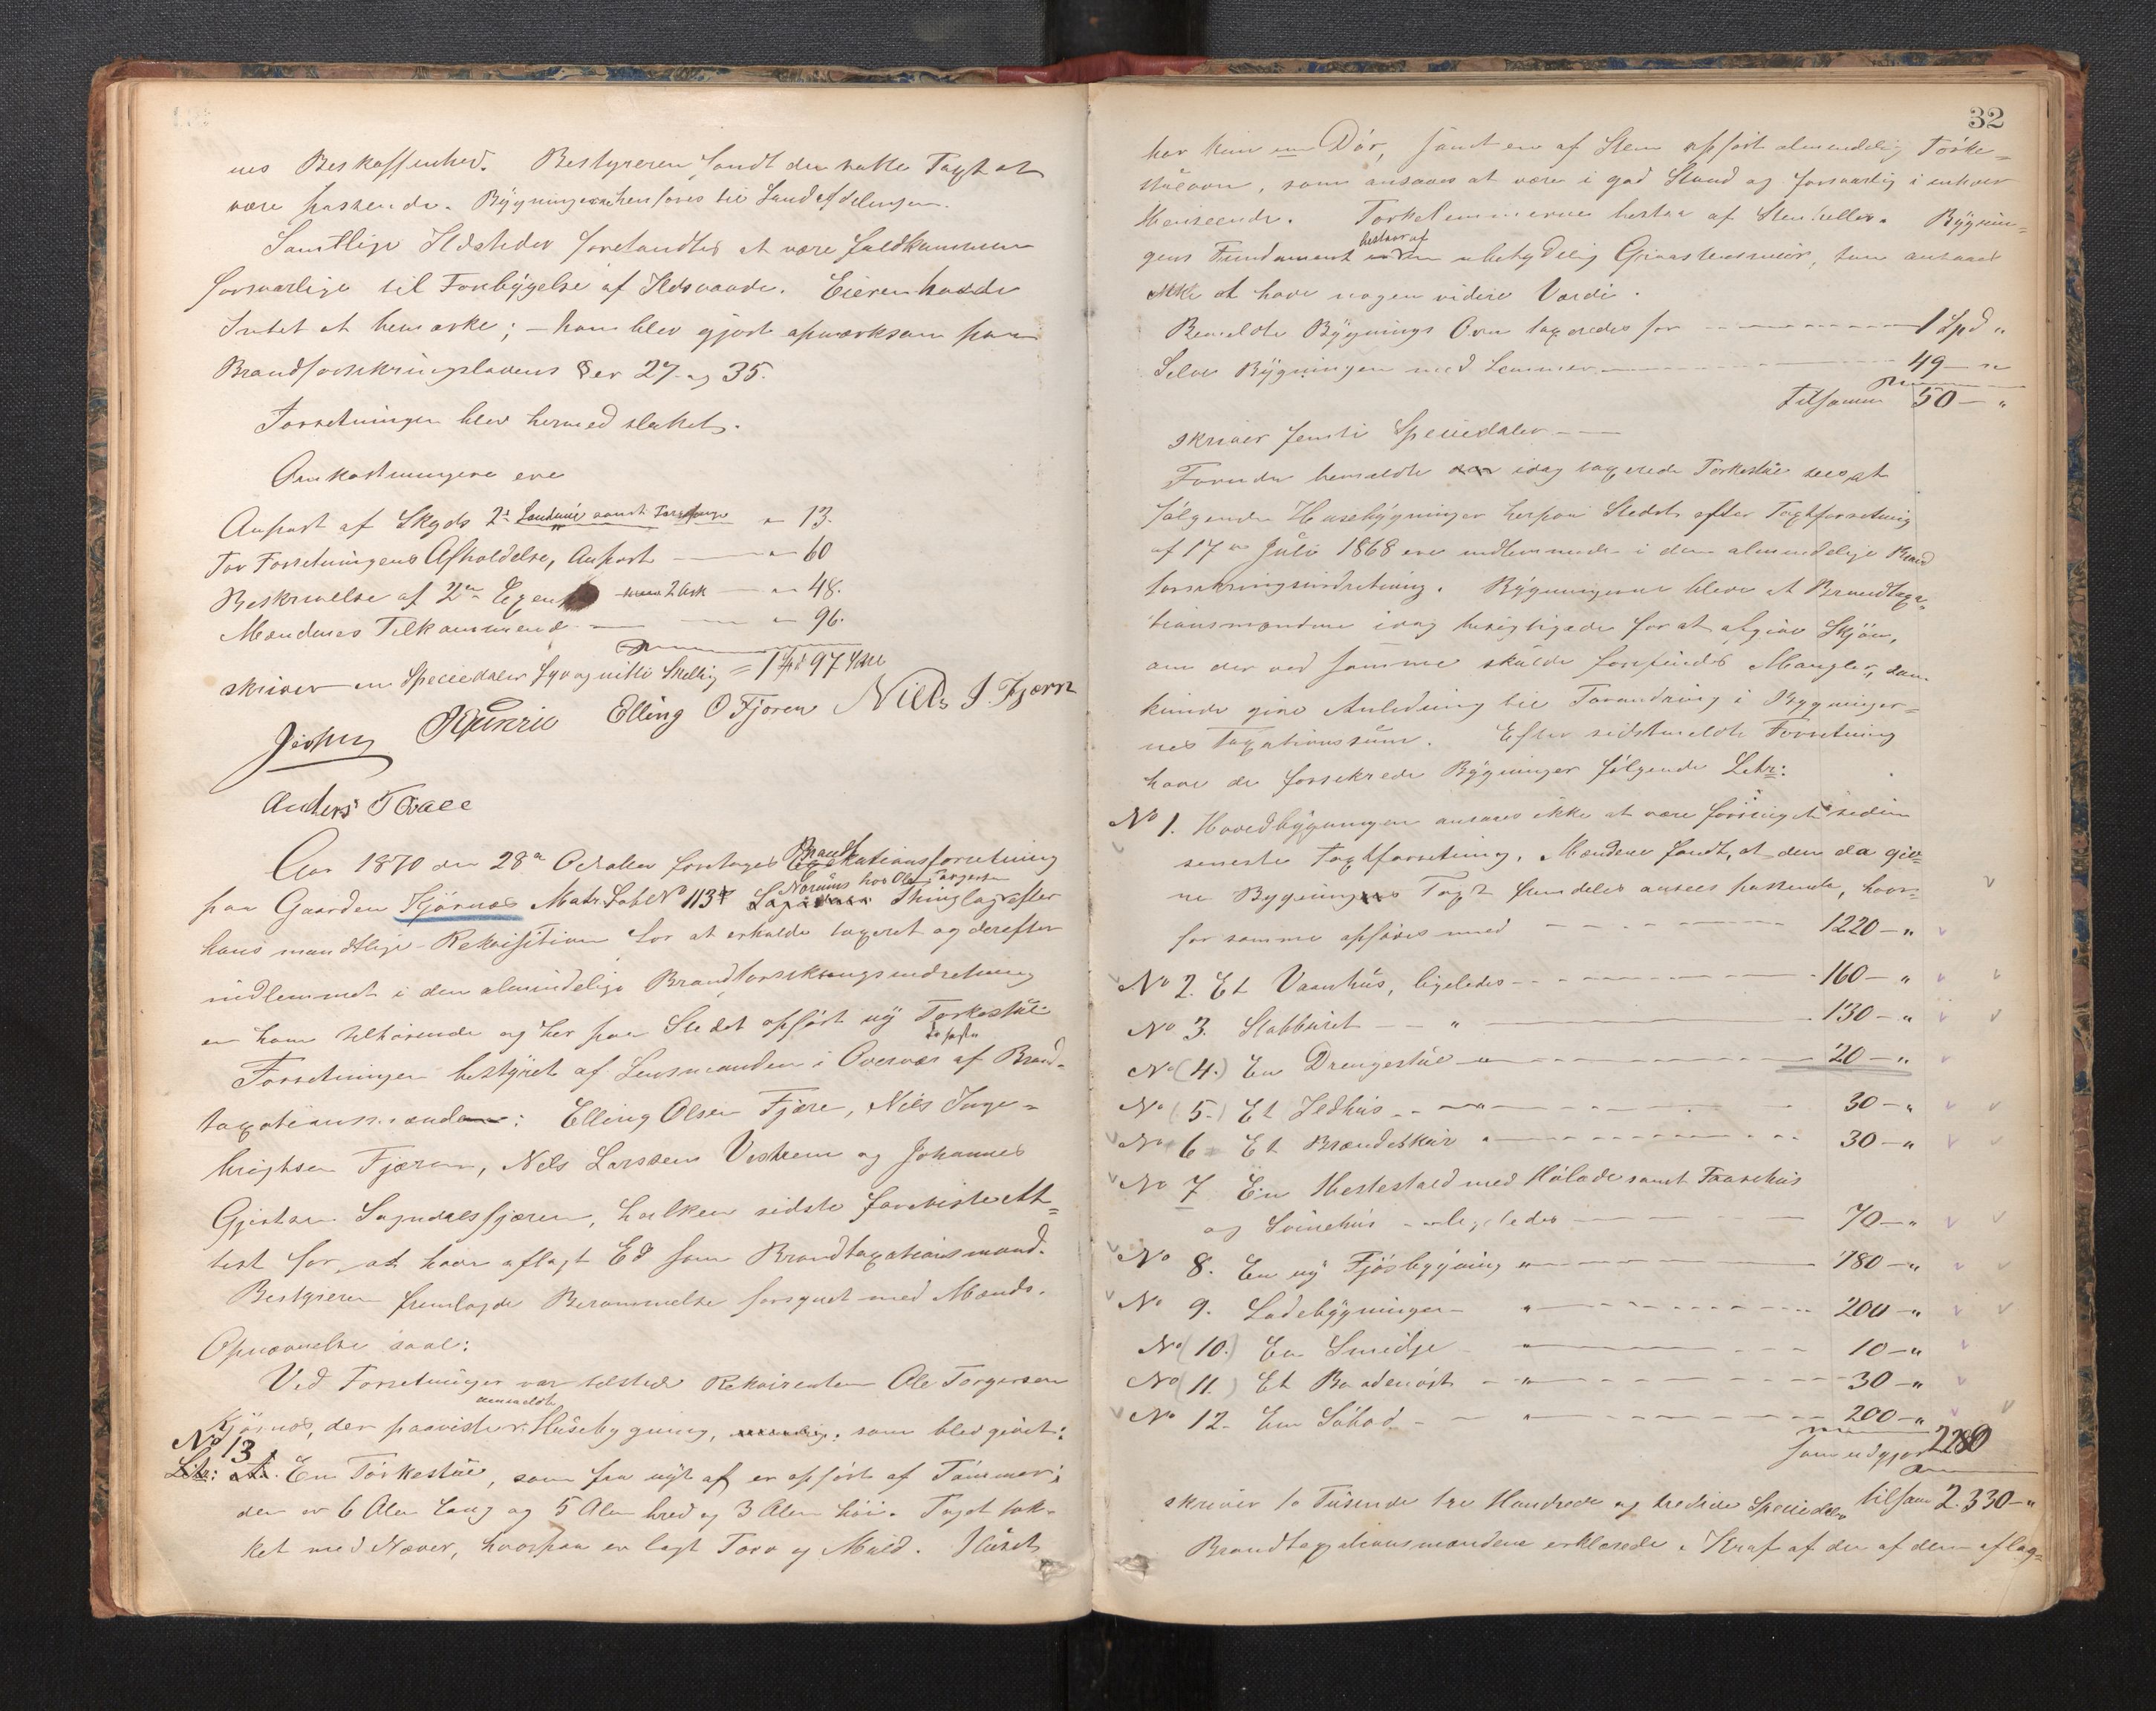 nes Beskaffenhed. Bestyreren fandt den satte Taxt at
være passende. Bygningerne henføres til Landafdelingen.
Samtlige Ildsteder forefandtes at være fuldkommen
forsvarlige til Forebyggelse af Ildsvaade. Eieren havde
Intet at bemærke; – han blev gjort opmærksom paa
Brandforsikringslovens §er 27 og 35.
Forretningen blev hermed sluttet.
Omkostningerne ere
Anpart af Skyds 2 " 13.
For Forretningens Afholdelse, Anpart " 60
Beskrivelse af 2de 2 Ark " 48.
Mændenes Tilkommende " 96.
skriver en Speciedaler syv og nitti Skelling = 1 Spd 97 Skill
Elling O Fjæren Niels I. Fjæren
Anders
Aar 1870 den 28de October foretoges Brandtaxationsforretning
paa Gaarden Kjørnæs Matr. Løb No 113 Norums hos Ole Torgersen Thinglag efter
hans mundtlige Rekvisition for at erholde taxeret og derefter
indlemmet i den almindelige Brandforsikringsindretning
en ham tilhørende og her paa Stedet opført ny Tørkestue
Forretningen bestyret af Lensmanden i Overvær af Brand-
taxationsmænden: Elling Olsen Fjære, Nils Inge-
brigtsen Fjæren, Nils Larssen Vestrem og Johannes
Gjertsen Sogndalsfjæren, hvilken sidste foreviste At-
test for at have aflagt Ed som Brandtaxationsmand.
Bestyreren fremlagde Berammelse forsynet med Mænds-
Opnævnelse saal:
Ved Forretningen var tilstede Rekvirenten Ole Torgersen
Kjørnæs, der paaviste anmeldte Husebygning, som blev givet:
No 13. En Tørkestue, som fra nyt af er opført af Tømmer;
den er 6 Alen lang og 5 Alen bred og 3 Alen høi. Taget tæk-
ket med Næver, hvorpaa er lagt Torv og Muld. Huset
32
har kun en Dør, samt en af Sten opført almindelig Tørke-
stueovn, som ansaaes at være i god Stand og forsvarlig i enhver
Henseende. Tørkelemmerne bestaa af Stenheller. Bygnin-
gens Fundament bestaar af en ubetydelig Graastensmuur, som ansaaes
ikke at have nogen videre Værdi.
Bemeldte Bygnings Ovn taxeredes for 1 Spd "
Selve Bygningen med Lemmer 49 – "
Tilsamm 50 – "
skriver femti Speciedaler
Foruden bemeldte idag taxerede Tørkestue sees at
følgende Husebygninger herpaa Stedet efter Taxtforretning
af 17de Juli 1868 ere indlemmede i den almindelige Brand
forsikringsindretning. Bygningerne bleve af Brandtaxa-
tionsmændene idag besigtigede for at afgive Skjøn,
om der ved samme skulde forefindes Mangler, som
kunde give Anledning til Forandring i Bygninger-
nes Taxationssum. Efter sidstmeldte Forretning
have de forsikrede Bygninger følgende Litr:
No 1. Hovedbygningen ansaaes ikke at være forringet siden
seneste Taxtforretning. Mændene fandt, at den da giv-
ne Bygnings Taxt fremdeles ansees passende, hvor-
for samme opføres med 1220 – "
No 2. Et Vaanhus, ligeledes 160 – "
No 3. Stabburet " 130 – "
No (4.) En Drengestue " 20 – "
No (5.) Et Ildhus " 30 – "
No 6 Et Brændeskur " 30 – "
No 7 En Hestestald med Hølade samt Faarehus
og Svinehus ligeledes 70 – "
No 8. En ny Fjøsbygning " 180 – "
No 9. Ladebygningen " 200 – "
No (10.) En Smidje " 10 – "
No (11.) Et Baadenøst " 30 – "
No 12. En Søbod " 200 – "
som udgjør 2280
skriver to Tusinde tre Hundrede og tredive Speciedaler tilsam 2.330 – "
Brandtaxationsmændene erklærede i Kraft af den af dem aflag-